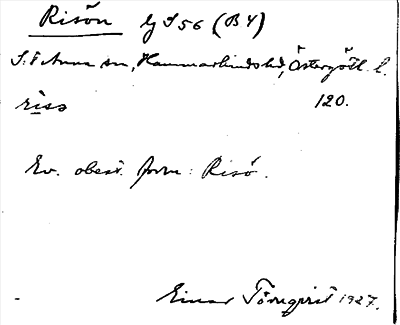 Risön lg S 56 (B 4)
S:t Anna sn, Hammarkinds hd, Östergötl. l.
riso 120.
Ev. obest. form: Risö.
Einar Törnqvist 1927.